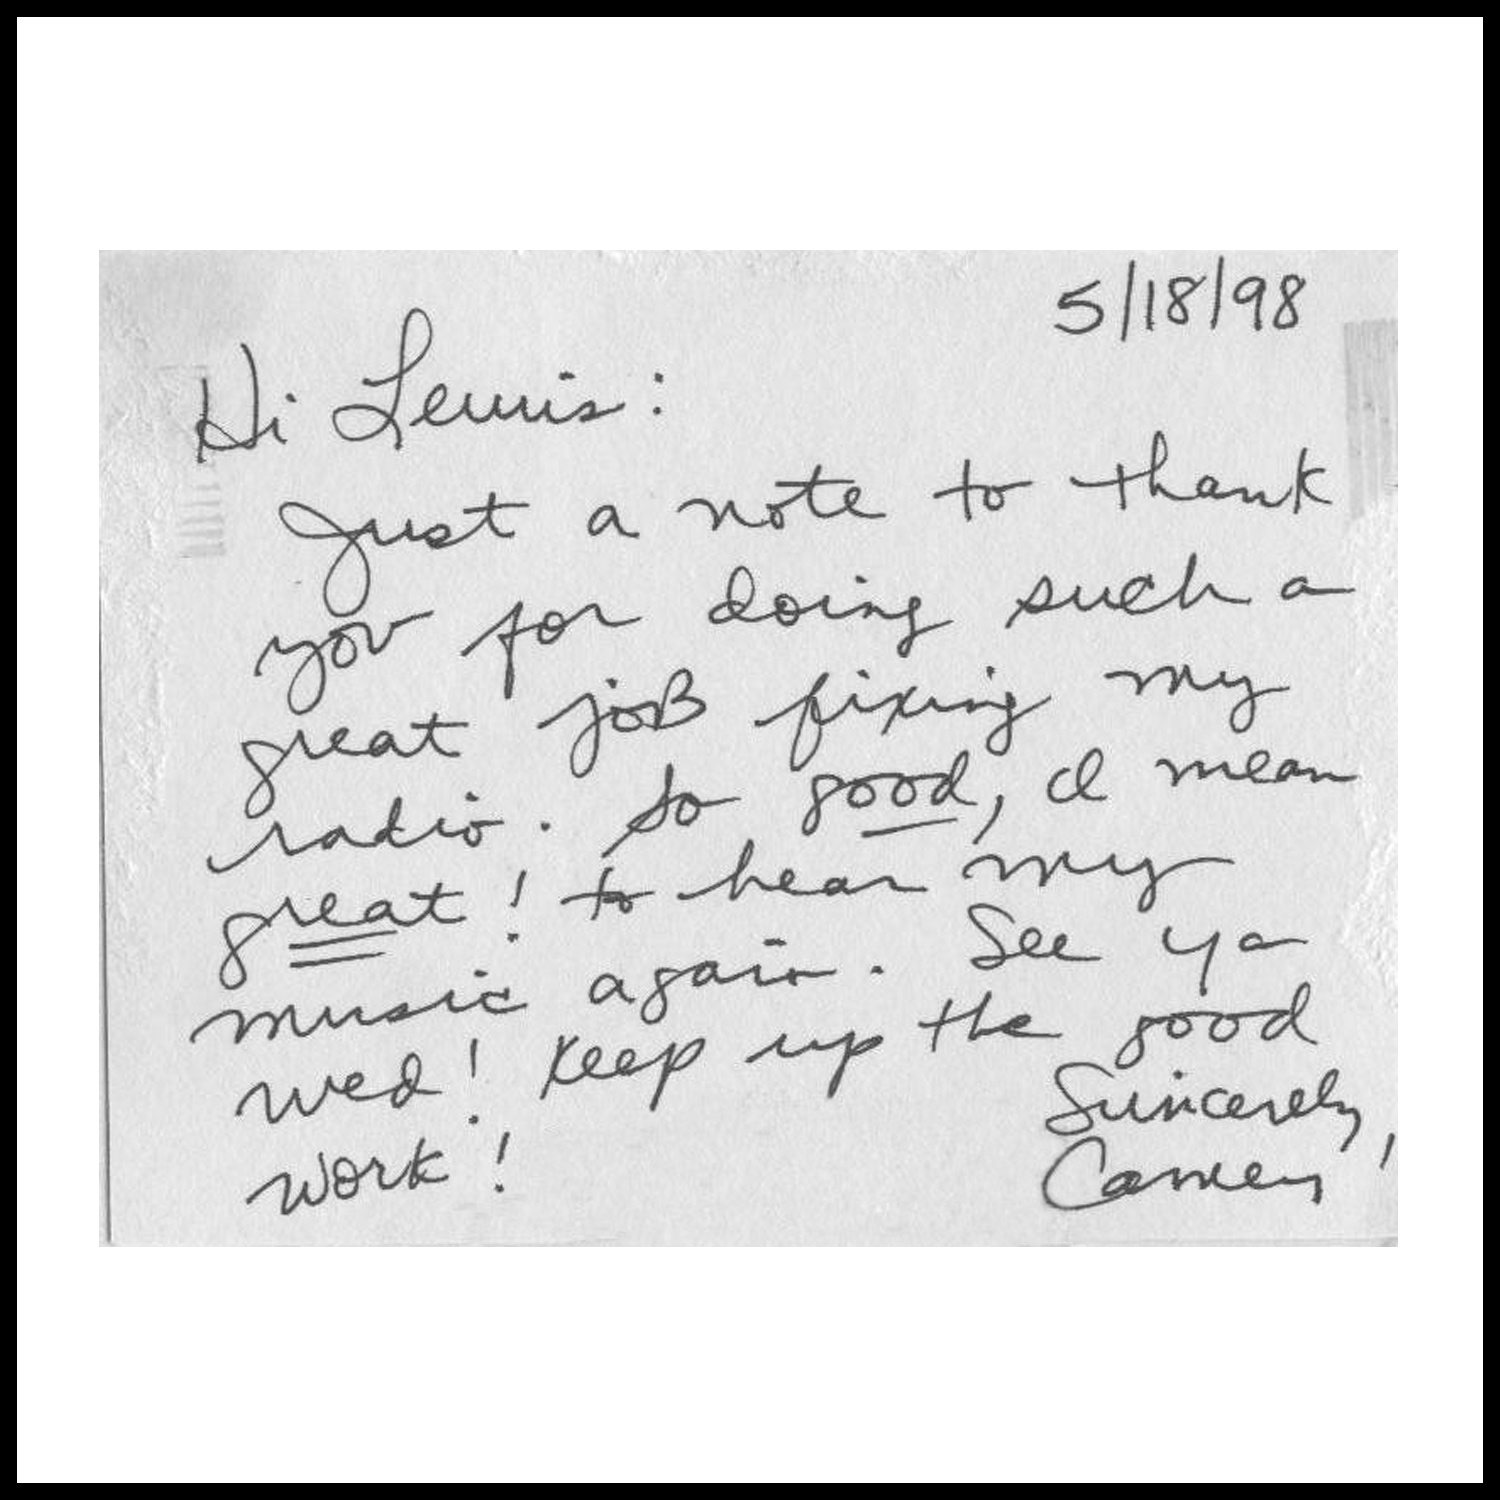 5/18/98
Hi Lewis:
Just a note to thank
you for doing such a
great job fixing my
radio. So good, I mean
great! to hear my
music again. See ya
wed! Keep up the good
work!
Sincerely,